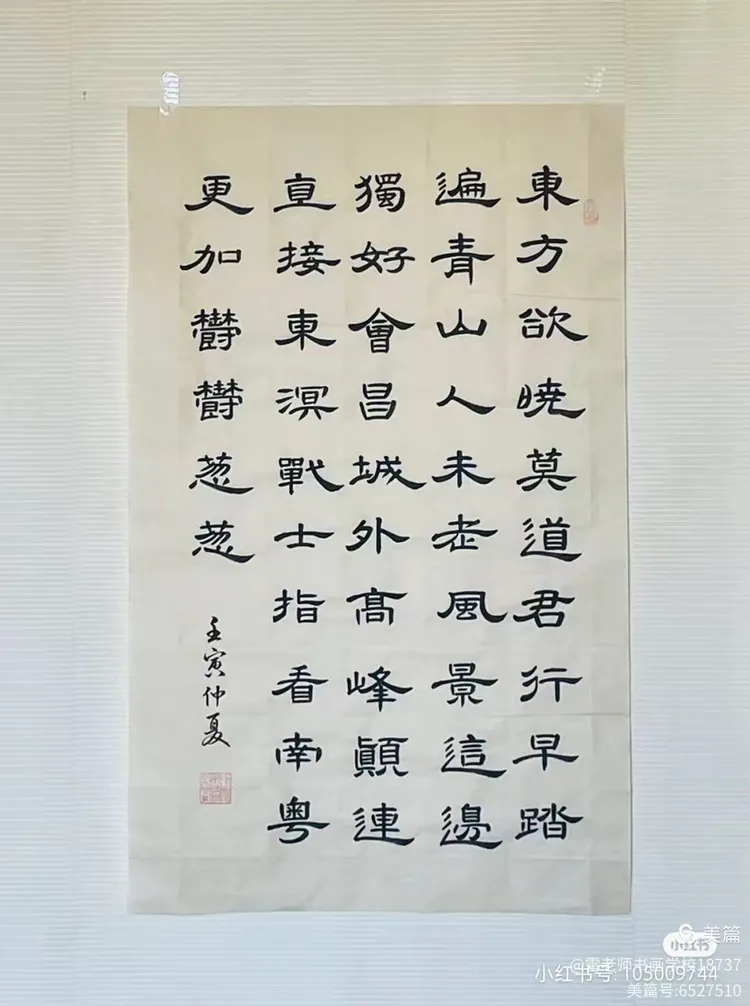 東方欲曉莫道君行早踏
遍青山人未老風景這邊
獨好會昌城外高峰顛連
直接東溟戰士指看南粵
更加欝欝葱葱
壬寅仲夏
美篇
小红书
@雷老师书画学校18737
小红书号:105009744
美篇号:6527510